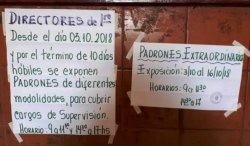 DIRECTORES de 1ra
Desde el día 03.10.2018
y por el término de 10 días
hábiles se exponen
PADRONES de diferentes
modalidades, para cubrir
cargos de Supervisión.
HORARIO: 9 a 11 y 14 a 17 hs
PADRONES EXTRAORDINARIO
Exposición: 3/10 al 16/10/18
HORARIOS: 9 a 11
14 a 17